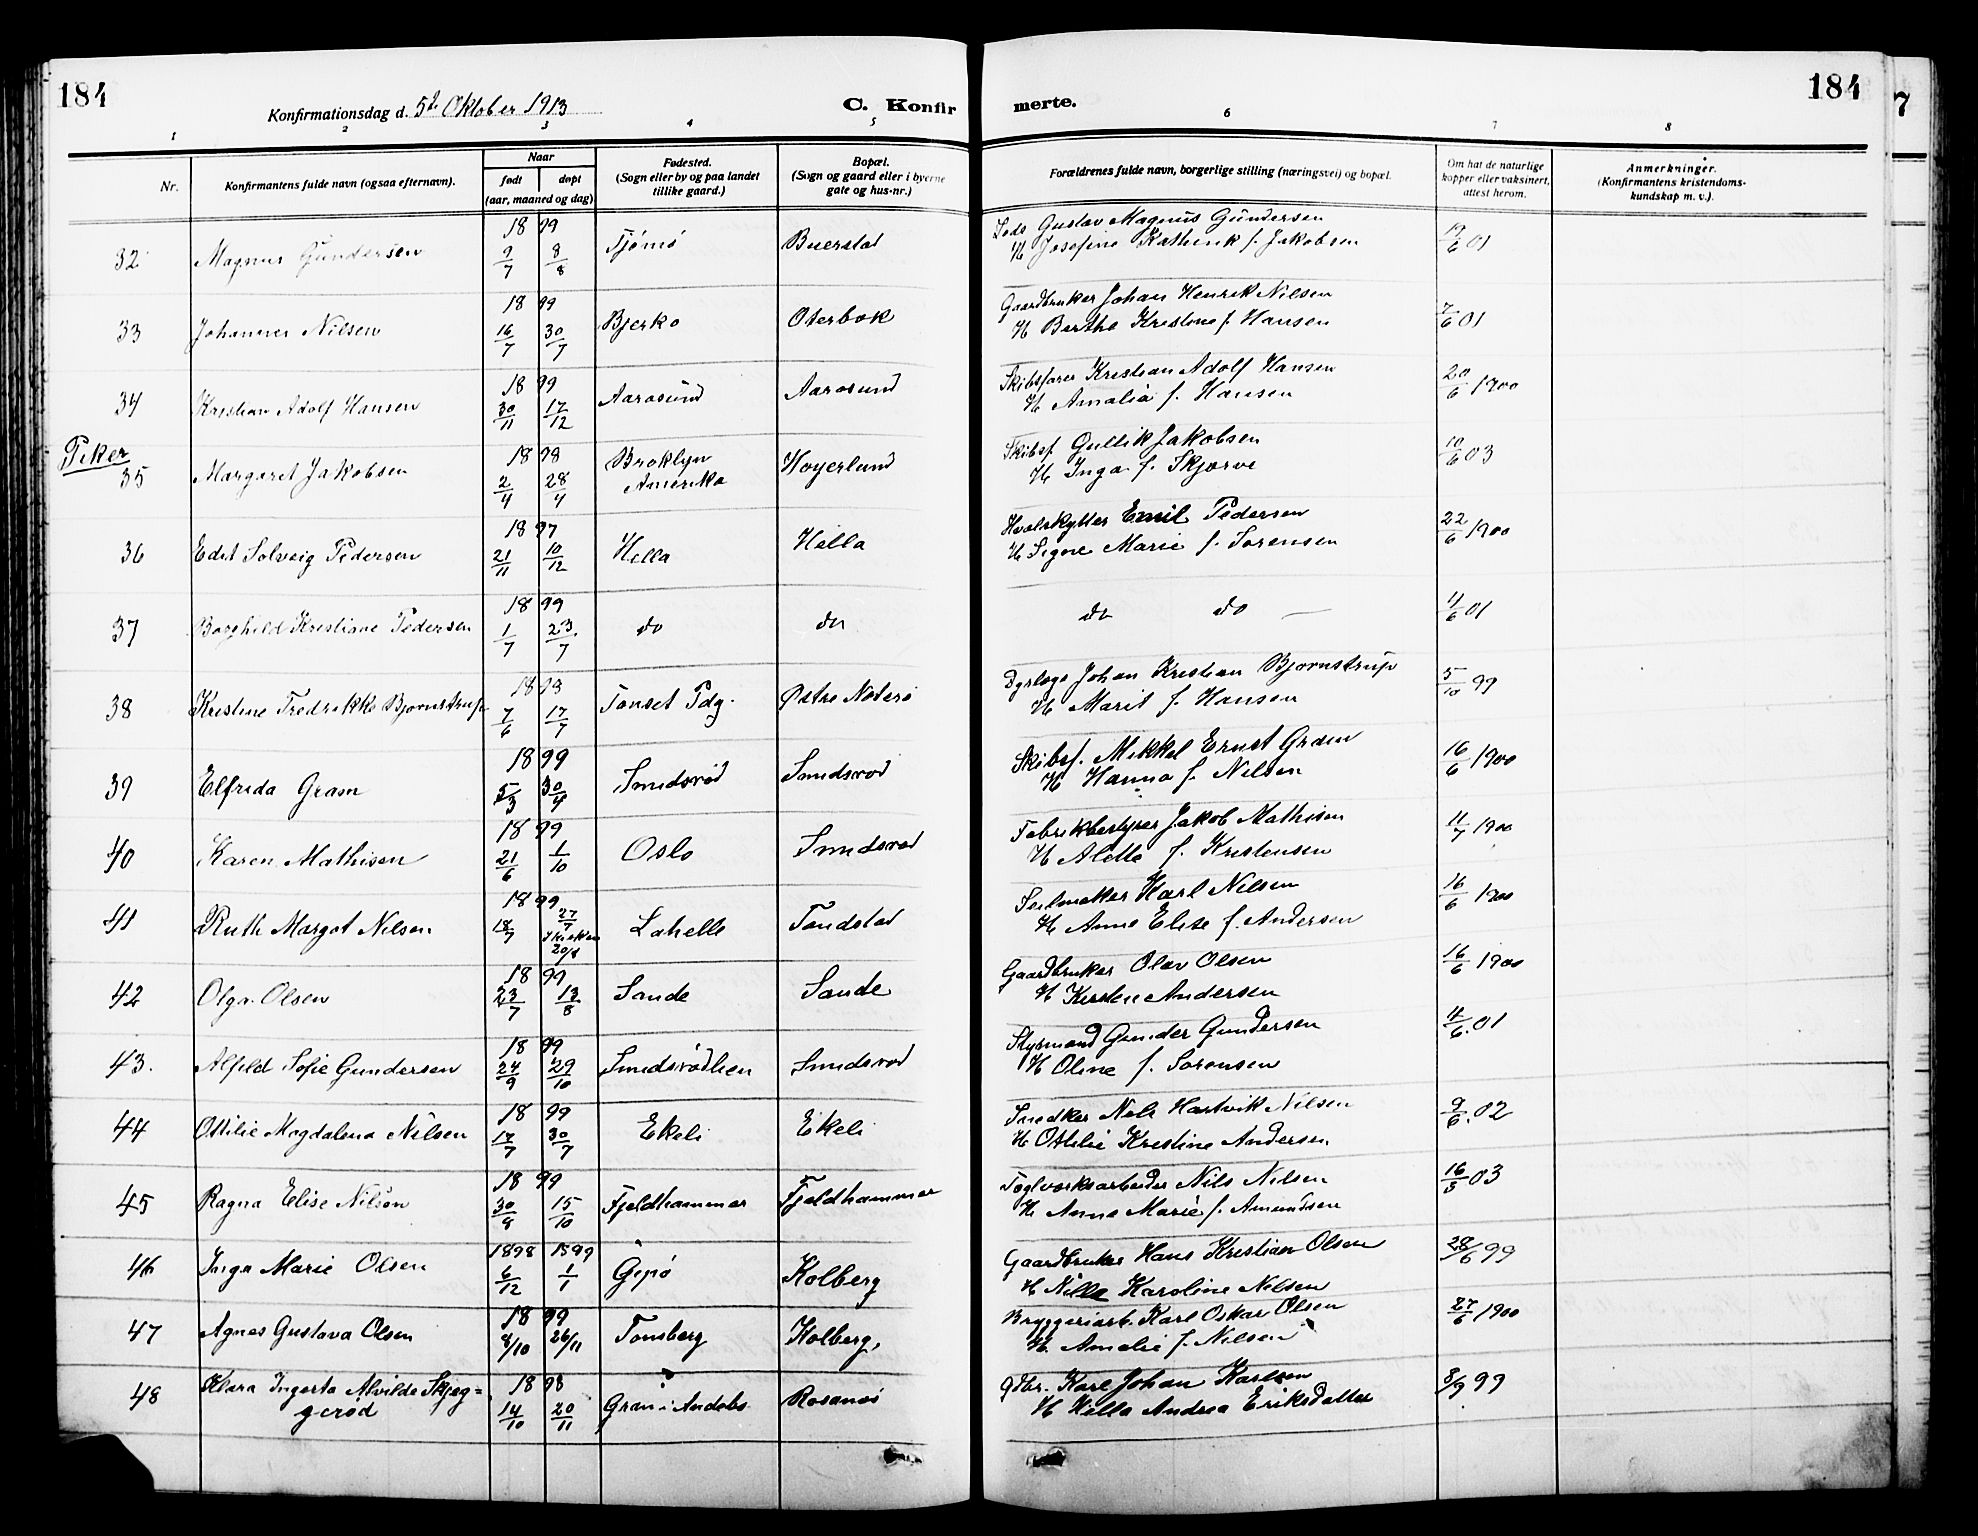 184
Konfirmationsdag d. 5te Oktober 1913
C. Konfir
merte.
184
7
1 2 3 4 5 6 7 8
Nr.
Konfirmantens fulde navn (ogsaa efternavn).
Naar
født døpt
(aar, maaned og dag)
Fødested.
(Sogn eller by og paa landet
tillike gaard.)
Bopæl.
(Sogn og gaard eller i byerne
gate og hus-nr.)
Forældrenes fulde navn, borgerlige stilling (næringsvei) og bopæl.
Om hat de naturlige
kopper eller vaksinert,
attest herom.
Anmerkninger.
(Konfirmantens kristendoms-
kundskap m. v.).
18 99
32 Magnus Gundersen 9/7 8/8 Tjømø Buerstad
Lods Gustav Magnus Gundersen
H Josefine Kathink f. Jakobsen 19/6 01
18 99
33 Johannes Nilsen 16/7 30/7 Bjerko Oterbæk
Gaardbruker Johan Henrik Nilsen
H Berthe Kristine f. Hansen 7/6 01
18 99
34 Kristian Adolf Hansen 30/11 17/12 Aarøsund Aarøsund
Skibsfører Kristian Adolf Hansen
H Amalia f. Hansen 20/6 1900
Piker
18 98
35 Margaret Jakobsen 2/4 28/4 Broklyn
Amerika Høyerlund
Skibsf Gullik Jakobsen
H Inga f. Skjærve 10/6 03
18 97
36 Edit Solveig Pedersen 21/11 10/12 Hella Hella
Hvalskytter Emil Pedersen
H Signe Marie f. Sørensen 22/6 1900
18 99
37 Borghild Kristiane Pedersen 1/7 23/7 do do
do do — 4/6 01
18 98
38 Kristine Fredrikke Bjørnstrup 7/6 17/7 Tønset Pdg. Østre Nøterø
Dyrlæge Johan Kristian Bjørnstrup
H Marit f. Hansen 5/10 99
18 99
39 Elfrida Gram 5/3 30/4 Smidsrød Smidsrød
Skibsf. Mikkel Ernst Gram
H Hanna f. Nilsen 16/6 1900
18 99
40 Karen Mathisen 21/6 1/10 Oslo Smidsrød
Fabrikbestyrer Jakob Mathisen
H Alette f. Kristensen 11/7 1900
18 99
41 Ruth Margot Nilsen 18/7 27/7 i kirken 20/8 Lahelle Tandstad
Seilmaker Karl Nilsen
H Anna Elise f. Andersen 16/6 1900
18 99
42 Olga Olsen 23/7 13/8 Sande Sande
Gaardbruker Olav Olsen
H Kirsten Andersen 16/6 1900
18 99
43. Alfild Sofie Gundersen 24/9 29/10 Smidsrødlien Smidsrød
Styrmand Gunder Gundersen
H Oline f. Sørensen 4/6.01
18 99
44 Ottilie Magdalena Nilsen 17/7 30/7 Ekeli Ekeli
Snedker Nels Hartvik Nilsen
H Ottilie Kristine Andersen 9/6.02
18 99
45 Ragna Elise Nilsen 30/8 15/10 Fjeldhammer Fjeldhammer
Teglverksarbeider Nils Nilsen
H Anna Marie f. Amundsen 16/5 03
1898 1899
46 Inga Marie Olsen 6/12 1/1 Gipø Kolberg
Gaardbruker Hans Kristian Olsen
H Nilla Karoline Nilsen 28/6 99
18 99
47 Agnes Gustava Olsen 8/10 26/11 Tønsberg Kolberg,
Bryggeriarb. Karl Oskar Olsen
H Amalie f. Nilsen 27/6 1900
18 98
48 Klara Ingerta Alvilde Skjeg=
gerød 14/10 20/11 Gran i Andebo Rosanæs
Gdbr. Karl Johan Karlsen
H Hella Andrea Eriksdatter 8/9 99